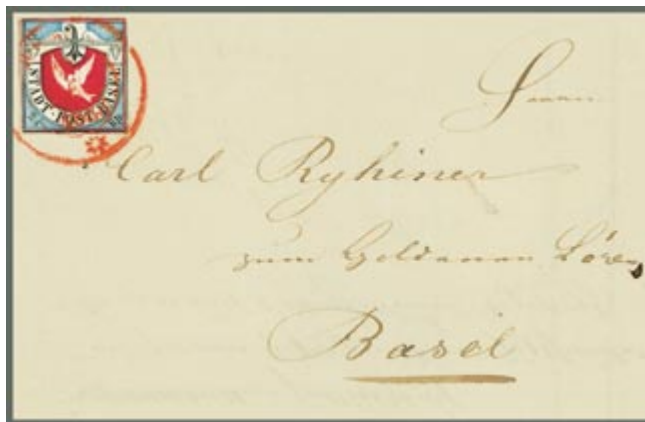 STADT-POST-BASEL
Herrn
Carl Ryhiner
zum Goldenen Löwen
Basel